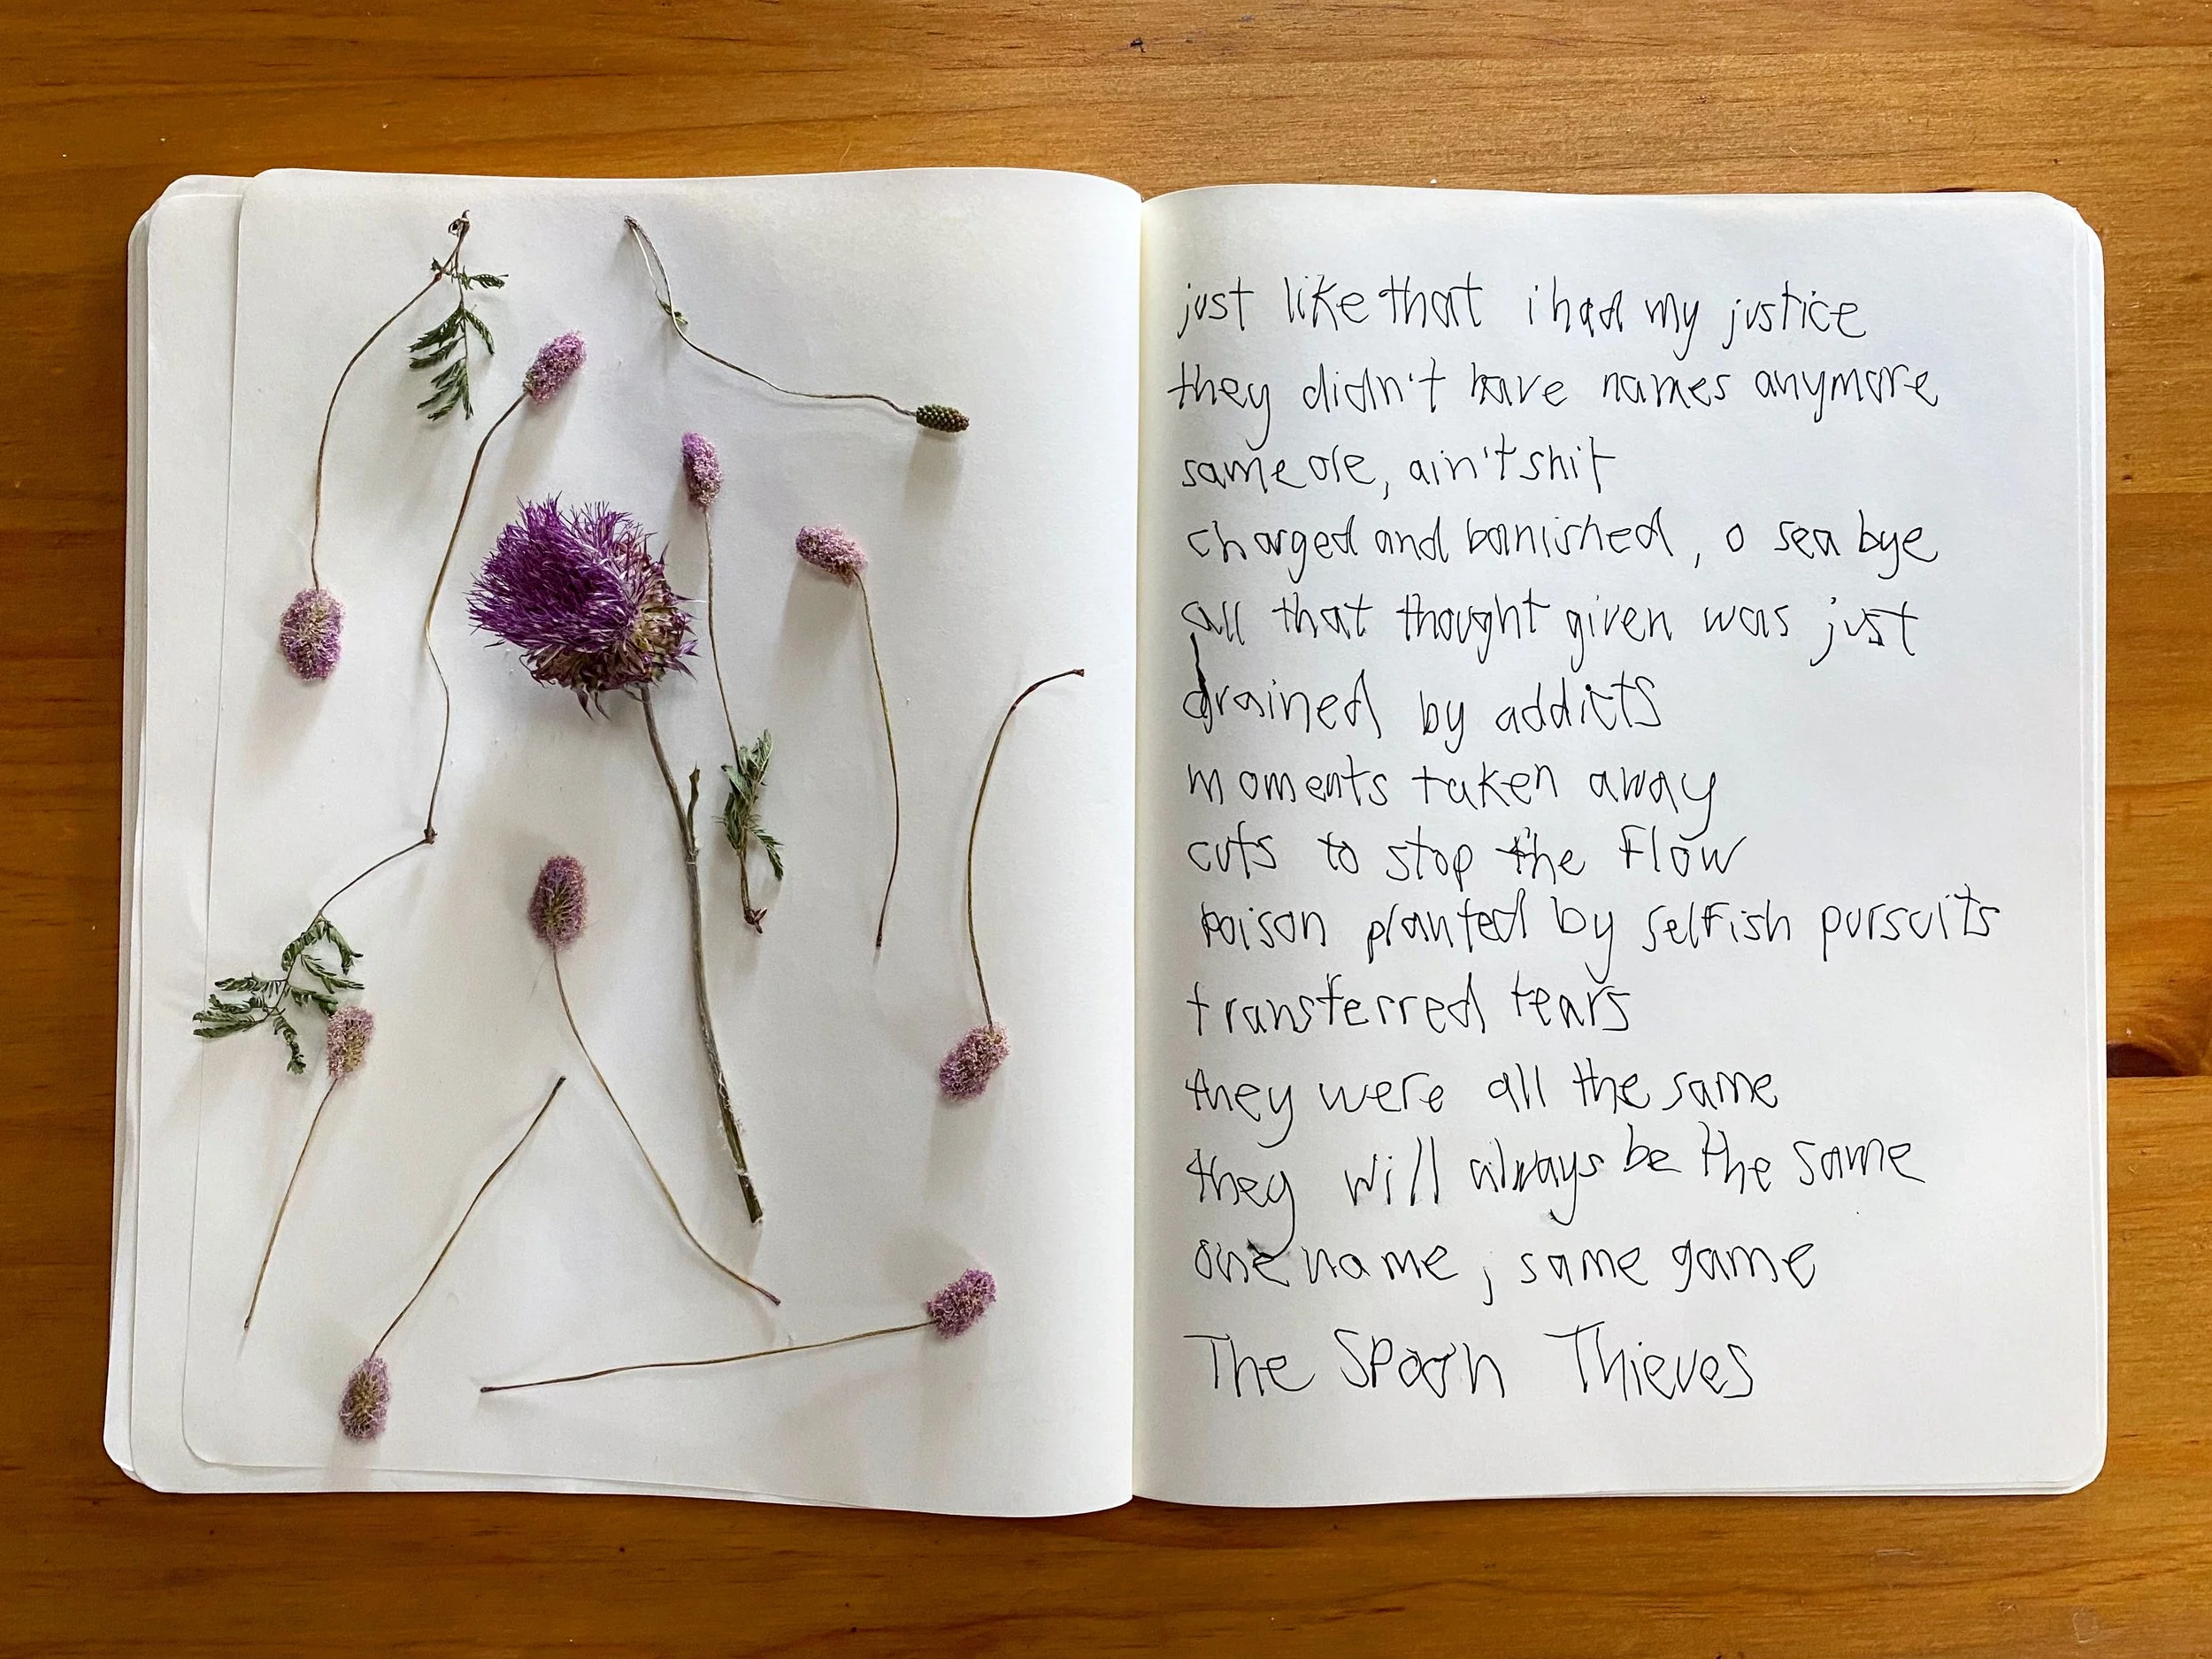 just like that i had my justice
they didn't have names anymore
same ole, ain't shit
charged and banished, o sea bye
all that thought given was just
drained by addicts
moments taken away
cuts to stop the flow
poison planted by selfish pursuits
transferred tears
they were all the same
they will always be the same
one name, same game
The Spoon Thieves